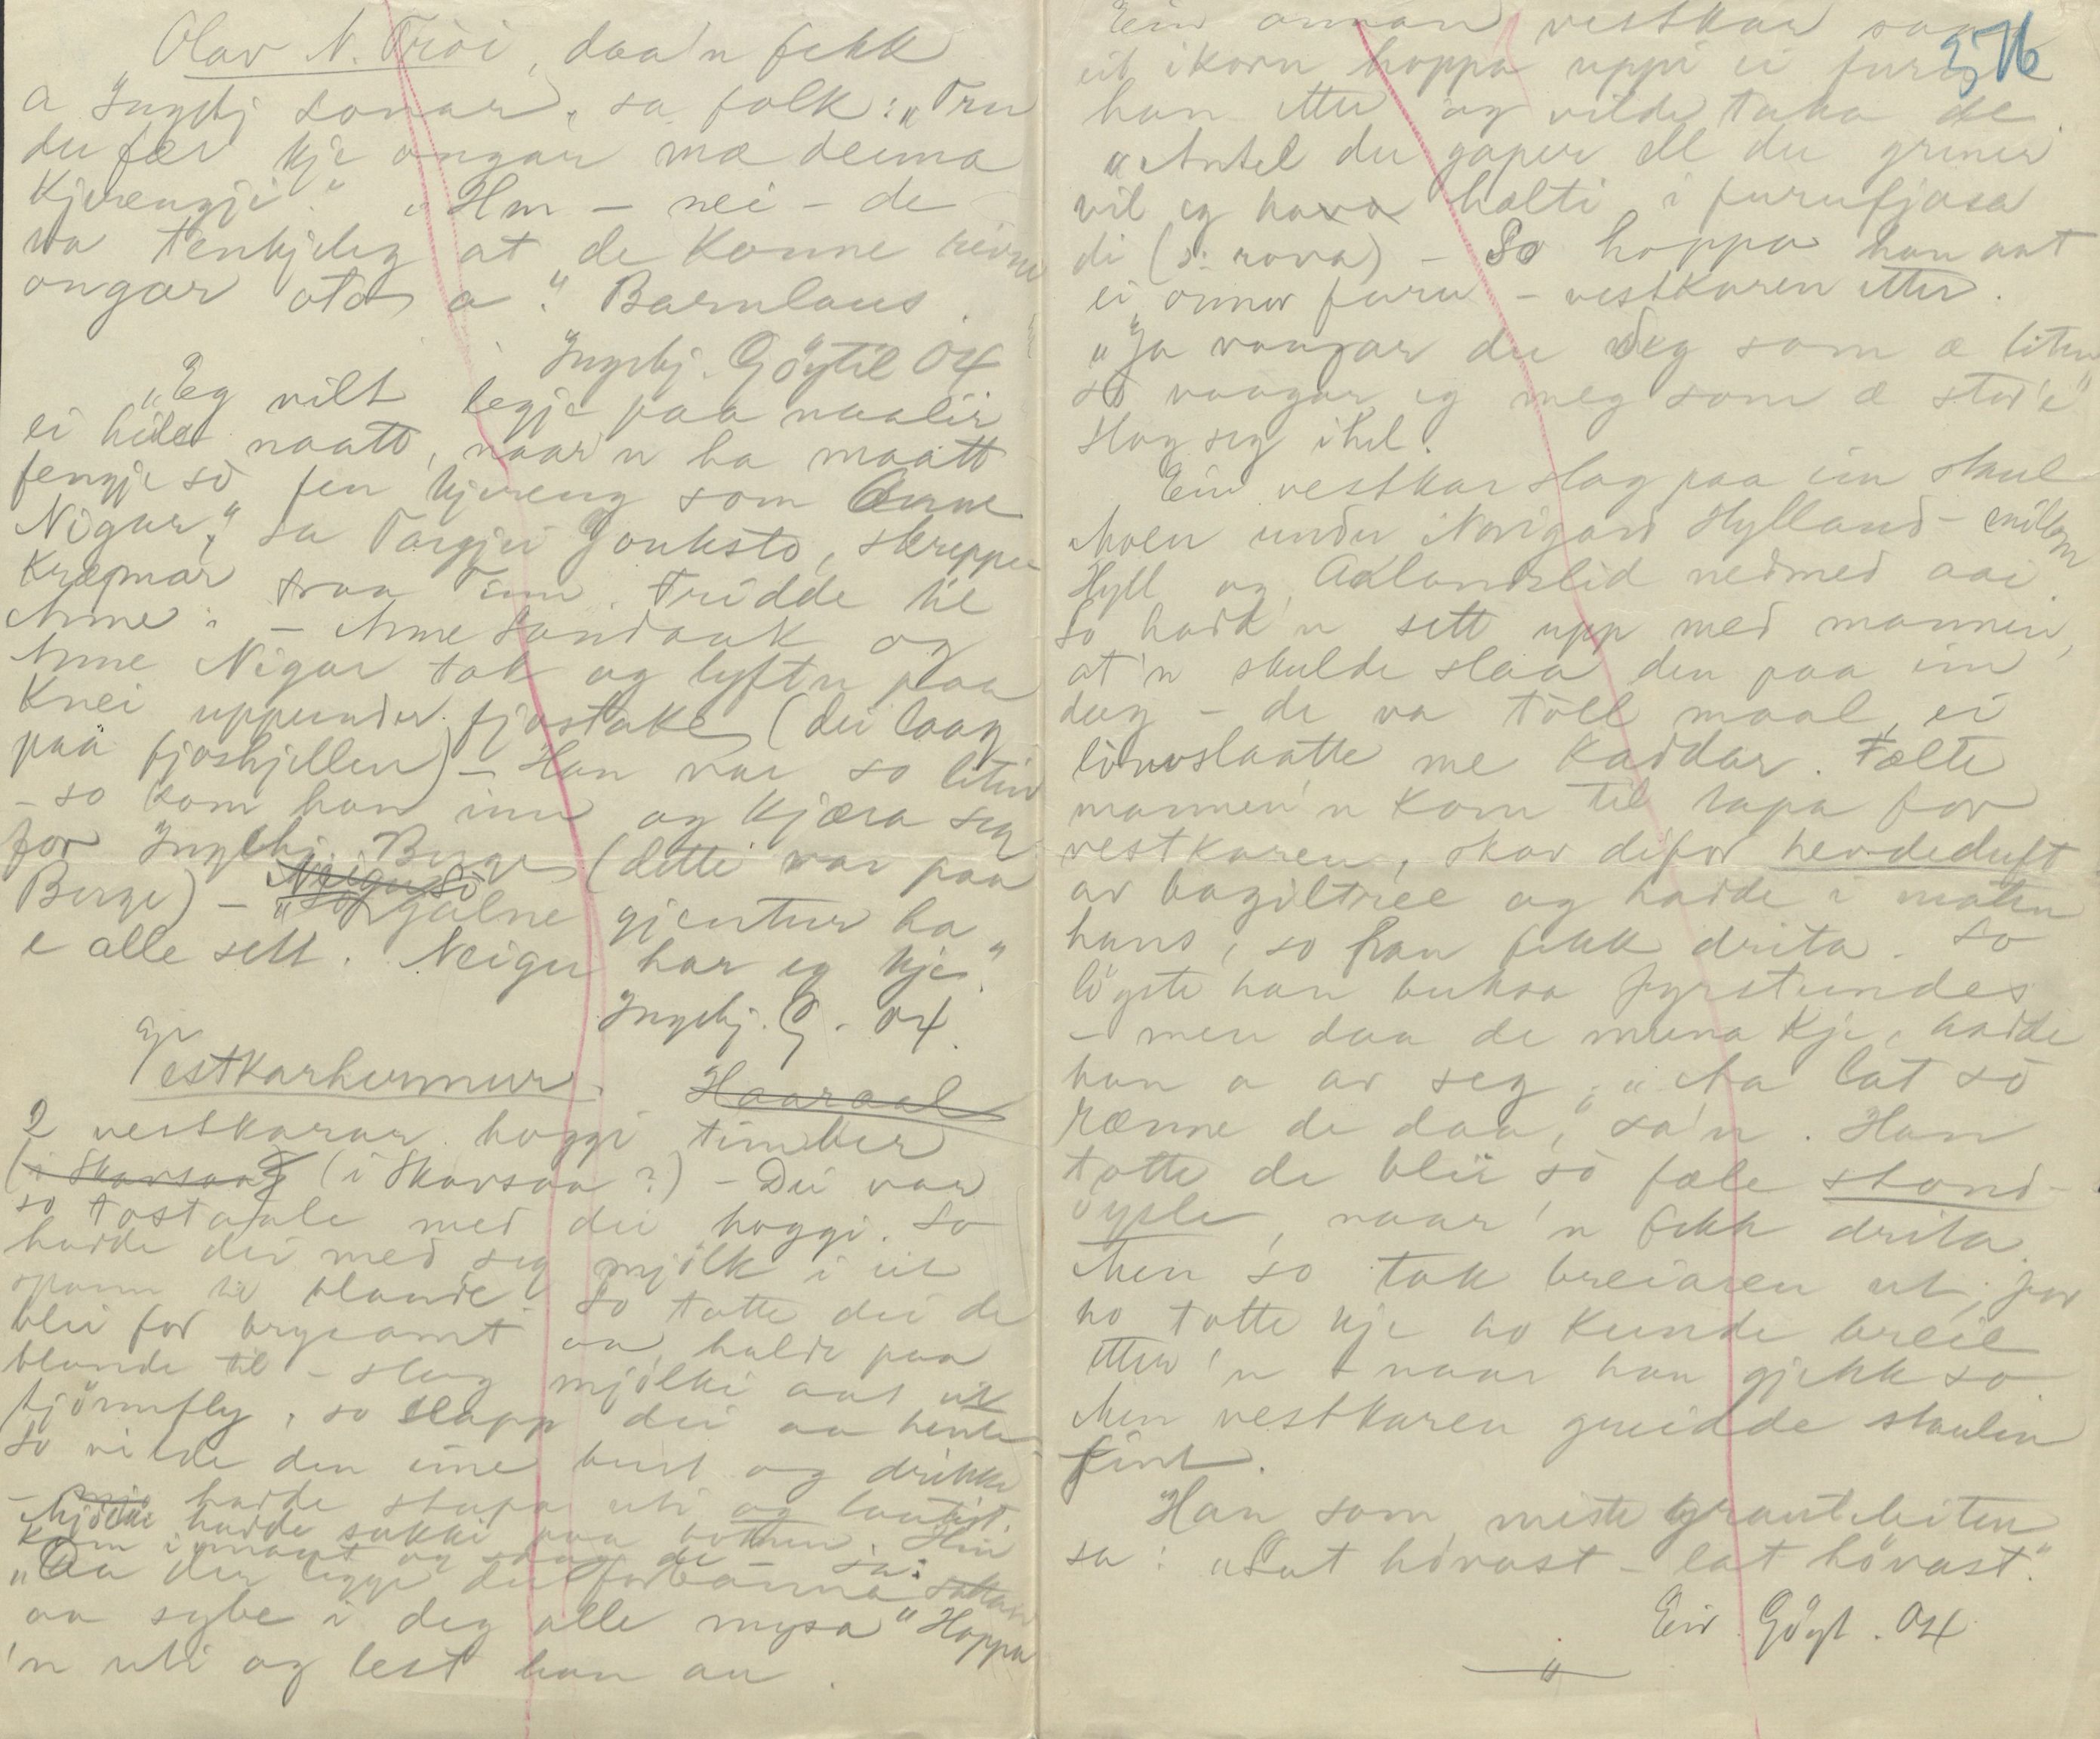 Olav N. Tröi, daa'n fekk
a Ingebj sonar, sa folk: „Tru
du fær kje ongar mæ deima
kjverengji." „Hm – nei – de
va tenkjeleg at de konne reivne
ongar otor a." Barnlaus.
Ingebj. Göytil 04
„Eg vilt legje paa naalir
ei heile naatt, naar'n ha maatt
fengje so fen kjvreng som Anne
Nigar," sa Torgjei Jonksto, skreppe
kræmar fraa Tinn. Fridde til
Anne: – Anne Sandaak og
Anne Nigar tok og lyft'n paa
knei uppunder fjostake (dei laag
paa fjoshjellen) – Han var so liten
– so kom han inn og kjæra seg
for Ingebj. Berge (dette var paa
Berge) – „So galne gjentur ha
e alle sett. Neigu har eg kje."
Ingebj. G. 04.
Vestkarhermur. Haaraal
2 vestkarar hoggi timber
(i Skorsaa) (i Skorsaa?) – Dei var
so tostafale med dei hoggi. So
hadde dei med seg mjölk i eit
spann til blande. So totte dei de
blei for brysamt aa halde paa
blande til – slog mjölki aat eit
tjönnfly, so slapp dei aa hente
So vilde den eine burt og drikke
– mjo hadde stupa uti og
Mjölki hadde sokki paa botnen. Hin
kom imaat og saag de – sa:
„Aa der ligge du forbanna sattan
aa sybe i deg alle mysa" Hoppa
'n uti og lest han au.
376
Ein annan vestkar saag
eit ikorn hoppa uppi ei furu
han etter og vilde taka de.
„Antel du gaper ell du griner
vil eg hava halti i furufjosa
di (s: rova) – So hoppa han aat
ei onnor furu – vestkaren etter.
„Ja vaagar du deg som æ liten
so vaagar eg meg som æ stor'e"
Slog seg ihel.
Ein vestkar slog paa ein skul
Moen under Norigard Hylland – millom
Hyll og Aalandslid nedmed aai.
So hadd'n sett upp med mannen,
at'n skulde slaa den paa ein
dag – de va töll maal, ei
lönnslaatte me kaddar. Fælte
mannen'n kom til tapa for
vestkaren, skar difor hendeduft
av bagiltree og hadde i maten
hans, so han fekk drita. So
löyste han buksa fyrstundes
– men daa de muna kje, hadde
han a av seg, „Aa lat so
rænne de daa," sa'n. Han
totte de blei so fæle stond-
öyele, naar 'n fekk drita.
Men so tok breiaren ut, for
ho totte kje ho kunde breie
etter 'n naar han gjekk so.
Men vestkaren greidde skulen
fint.
Han som miste grautbeiten
sa: „Lat hövast – lat hövast."
Eiv. Göyt. 04